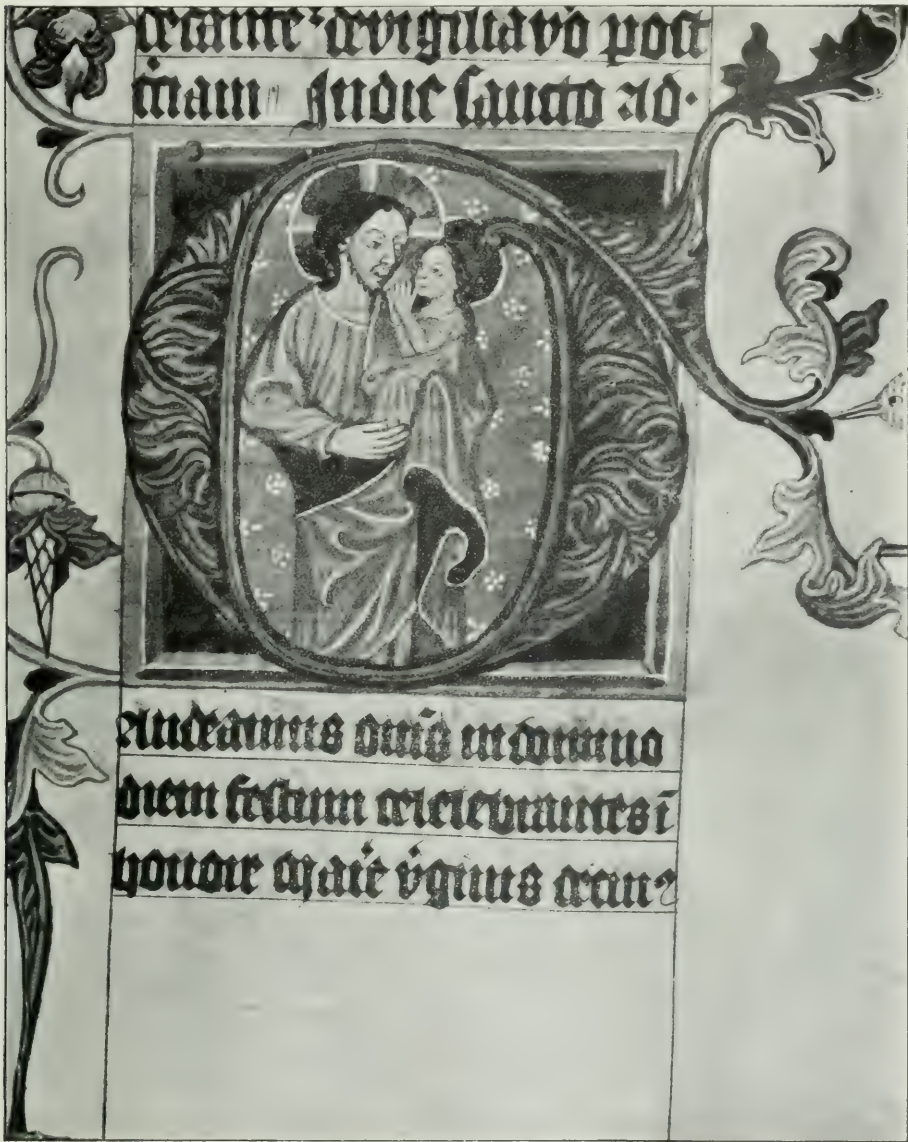 cedante· devigilia vō post
In die sancto ad·
audeamus om̄s in domino
diem festum celelebrantes ī
honore Marie v̄ginis